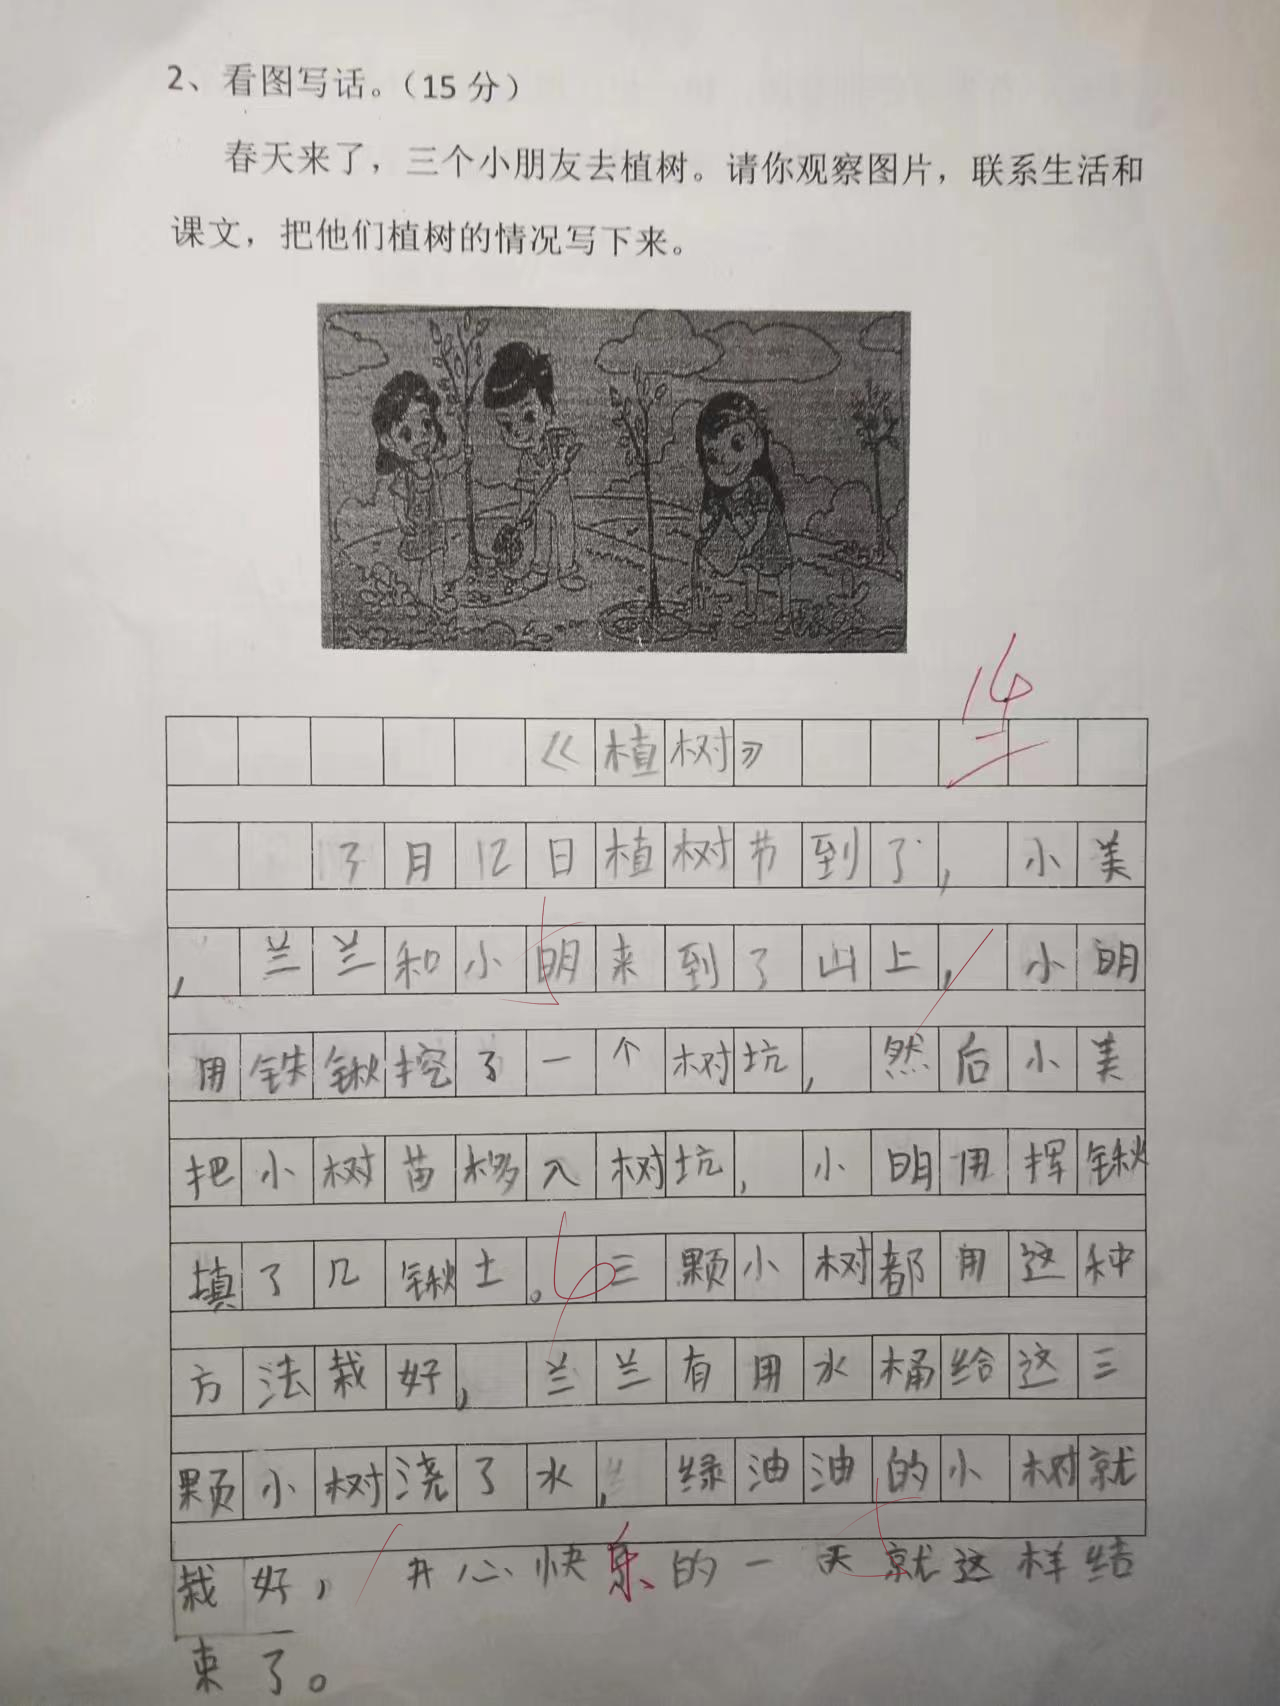 2、看图写话。（15分）
春天来了，三个小朋友去植树。请你观察图片，联系生活和
课文，把他们植树的情况写下来。
14
《植树》
3月12日植树节到了，小美
，兰兰和小明来到了山上，小明
用铁锹挖了一个树坑，然后小美
把小树苗移入树坑，小明用挥锹
填了几锹土。三颗小树都用这种
方法栽好，兰兰有用水桶给这三
颗小树浇了水，绿油油的小树就
栽好，开心快乐的一天就这样结
束了。